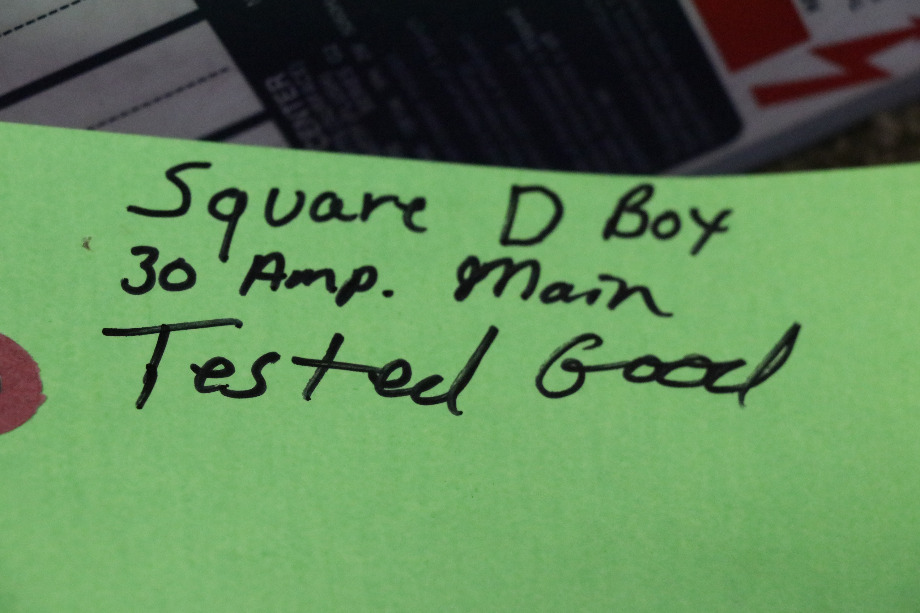 Square D Box
30 Amp. Main
Tested Good